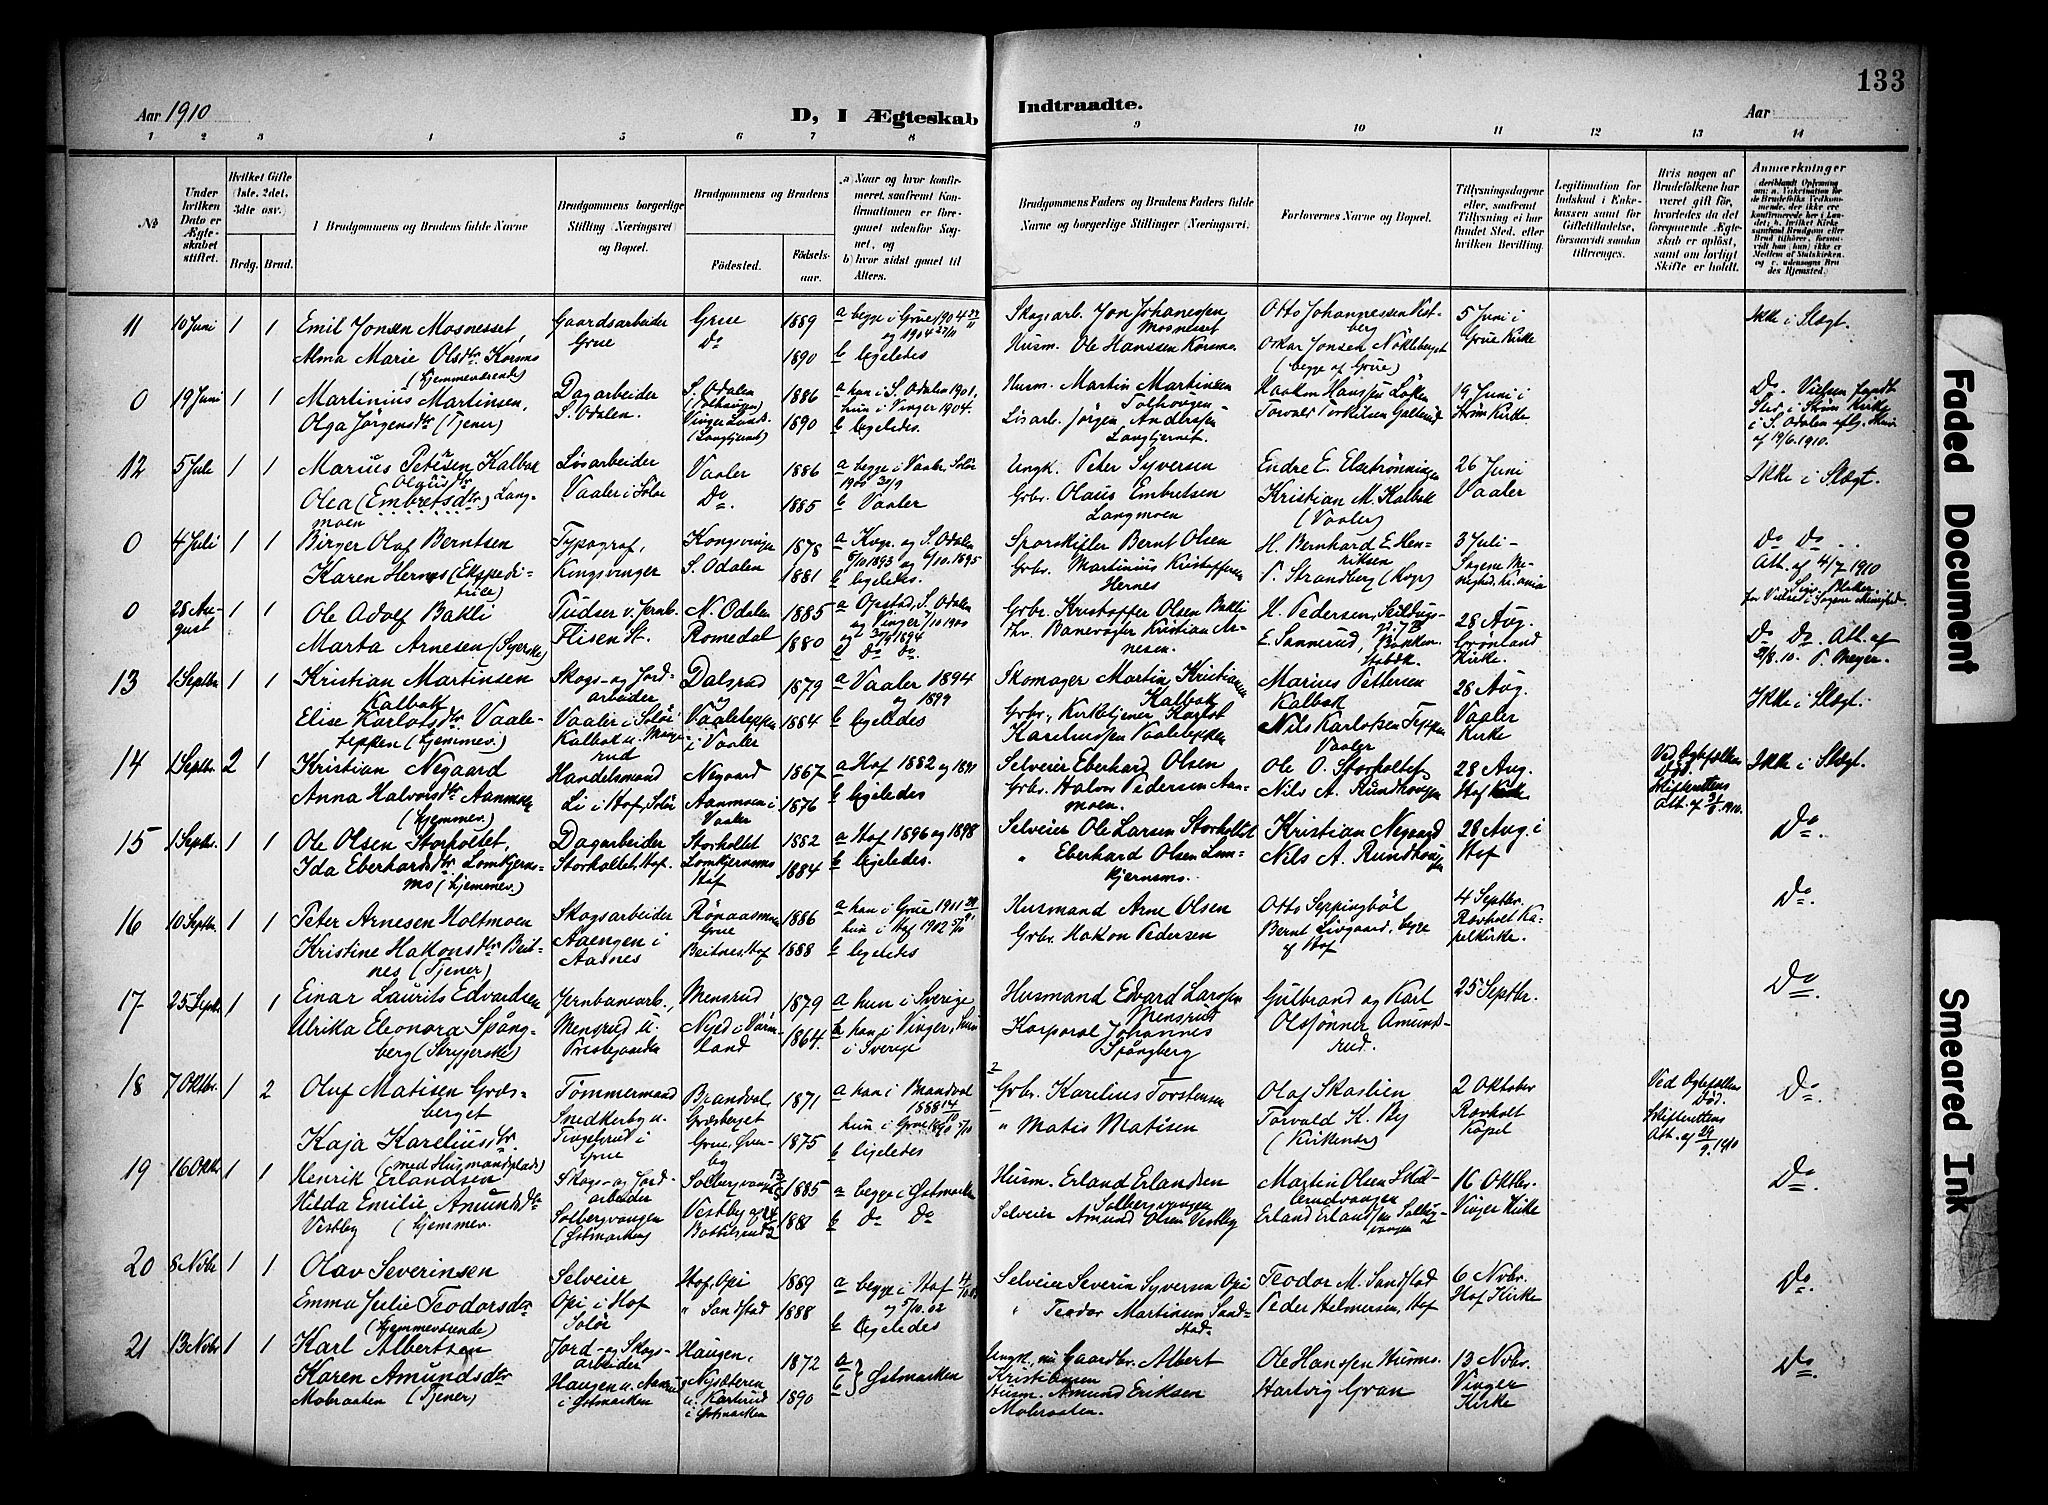 133
Aar 1910
D, I Ægteskab Indtraadte.
Aar
1 2 3 4 5 6 7 8 9 10 11 12 13 14
No
Under hvilken Dato er Ægteskabet stiftet.
Hvilket Gifte (1ste, 2det, 3die osv.)
Brdg. Brud.
I Brudgommens og Brudens fulde Navne
Brudgommens borgerlige Stilling (Næringsvei) og Bopæl.
Brudgommens og Brudens
Födested.
Födselsaar.
a) Naar og hvor konfirmeret, saafremt Konfirmationen er foregaaet udenfor Sognet, og
b) hvor sidst gaaet til Alters.
Brudgommens Faders og Brudens Faders fulde Navne og borgerlige Stillinger (Næringsvei.
Forlovernes Navne og Bopæl.
Tillysningsdagene eller, saafremt Tillysning ei har fundet Sted, efter hvilken Bevilling.
Legitimation for Indskud i Enkekassen samt for Giftetilladelse, forsaavidt saadan tiltrænges.
Hvis nogen af Brudefolkene har været gift för, hvorledes da det foregaaende Ægteskab er oplöst, samt om lovligt Skifte er holdt.
Anmærkninger
11 10 Juni 1 1 Emil Jonsen Mosnesset, Gaardsarbeider Grue Grue 1889 a begge i Grue 1904 og 1904 Skogsarb. Jon Johanessen Mosnesset Otto Johannessen Kestberg 5 Juni i Grue Kirke Ikke i Slægt.
Alma Marie Olsdtr Korsmo (hjemmeværende) Do 1890 b ligeledes Husm. Ole Hanssen Korsmo Oskar Jonsen Nökleberget (begge af Grue)
0 19 Juni 1 1 Martinius Martinsen, Dagarbeider S. Odalen. S. Odalen 1886 a han i S. Odalen 1901, hun i Vinger 1904. Husm. Martin Martinsen Haakon Hanssen Löken 19 Juni i Ström Kirke Do. Vielsen fandt Sted i Ström Kirke i S. Odalen
Olga Jörgensdtr (Tjener) Vinger 1890 b ligeledes. Lösarb. Jörgen Andersen Langtjernet. Torvald Torkilsen Galterud af 19/6. 1910.
12 5 Juli 1 1 Marius Petersen Kalbak Lösarbeider Vaaler i Solör Vaaler 1886 a begge i Vaaler, Solör 1900 Ungk. Peter Syversen Endre E. Elsetrönningen 26 Juni Vaaler Ikke i Slægt.
Olea (Embretsdtr) Langmoen Do. 1885 b Vaaler Grbr. Olaus Embretsen Langmoen Kristian M. Kalbak (Vaaler)
0 4 Juli 1 1 Birger Olaf Berntsen Typograf, Kongsvinger Kongsvinger 1878 a Kvgr. og S. Odalen 8/10 1893 og 6/10. 1895 Sporskifter Bernt Olsen H. Bernhard E. Henriksen 3 Juli - Sagene Menighed. Kr.ania Do Do
Karen Hernes (Ekspeditrice) S. Odalen 1881 b ligeledes. Grbr. Martinius Kristoffersen Hernes P. Strandberg (Kvgr) Att. af 4/7 1910
0 28 August 1 1 Ole Adolf Bakli Pudser v. Jernb. Flisen St. N. Odalen 1885 a Opstad, S. Odalen og Vinger 7/10 1900 og 1894 Grbr. Kristoffer Olsen Bakli H. Pedersen, 28 Aug. Grönland Kirke. Do Do. Att. af
Marta Arnesen (Syerske) Romedal 1880 b Do Do. fhv. Banevogter Kristian Arnesen. E. Sannerud, 31/8. 10. P. Meyer.
13 1 Septbr 1 1 Kristian Martinsen Kalbak Skogs- og Jordarbeider Dalsrud 1879 a Vaaler 1894 og 1899 Skomager Martin Kristiansen Kalbak Marius Pettersen Kalbak 28 Aug. Vaaler Kirke Ikke i Slægt.
Elise Karlotsdtr Vaaleteppen (hjemmev.) Vaaler i Solör Kalbak u. Vaaleteppen i Vaaler 1884 b ligeledes Grbr., Kirketjener Karlot Vaaleteppen Nils Karlotsen Teppen Vaaler
14 1 Septbr. 2 1 Kristian Negaard Handelsmand Negaard 1867 a Hof 1882 og 1891 Selveier Eberhard Olsen Ole O. Storholtet 28 Aug. Hof Kirke Ved Ægtefællens Död. Skifterettens Att. af 1910. Ikke i Slægt.
Anna Halvorsdtr Aanmoen (hjemmev.) Li i Hof, Solör Aanmoen i Vaaler 1876 b ligeledes Grbr. Halvor Pedersen Aanmoen. Nils A. Rundhaugen
15 1 Septbr. 1 1 Ole Olsen Storholtet, Dagarbeider Storholtet, Hof. Storholtet 1882 a Hof 1896 og 1898 Selveier Ole Larsen Storholtet Kristian Negaard 28 Aug. i Hof Do.
Ida Eberhardsdtr Lomkjernsmo (hjemmev.) Lomkjernsmo Hof 1884 b ligeledes. " Eberhard Olsen Lomkjernsmo. Nils A. Rundhaugen
16 10 Septbr. 1 1 Peter Arnesen Holtmoen Skogsarbeider Rönaasmoen Grue 1886 a han i Grue 1901 hun i Hof 1902 5/10 Husmand Arne Olsen Otto Seppingböl 4 Septbr. Rovholt Kapelkirke. Do.
Kristine Hakonsdtr Beitnes (Tjener) Aaengen i Aasnes Beitnes, Hof 1888 b ligeledes Grbr. Hakon Pedersen Bernt Livgaard, begge af Hof
17 25 Septbr 1 1 Einar Laurits Edvardsen Jernbanearb., Mensrud u. Præstegaarden Mensrud 1879 a hun i Sverige Husmand Edvard Larssen Mensrud Gulbrand og Karl Olsönner Amundrud. 25 Septbr. Do
Ulrika Eleonora Spångberg (Strygerske) Nyed i Värmland 1864. b han i Vinger, hun i Sverige Korporal Johannes Spångberg
18 7 Oktbr. 1 2 Oluf Matisen Græsberget Tömmermand Smedkerby u. Tingelsrud i Grue Brandval, Græsberget 1871 a han i Brandval 1888 14/10 hun i Grue 1890 5/10 2 Grbr. Karelius Torstensen Olaf Skaslien 2 Oktober Rovholt Kapel Ved Ægtefællens Död. Skifterettens Att. af 29/9. 1910 Do
Kaja Kareliusdtr (med Husmandsplads) Grue, Överby 1875 b ligeledes 1 " Matis Matisen Torvald K. By (Kirkenær)
19 16 Oktbr. 1 1 Henrik Erlandsen Skogs- og Jordarbeider Solbergvangen (Östmarken) Solbergvangen 1885 a begge i Östmarken Husm. Erland Erlandsen Solbergvangen Martin Olsen Skullerudvangen 16 Oktbr. Vinger Kirke Do
Hilda Emilie Amundsdtr Vestby (hjemmev. Vestby 1888 b Do Do Selveier Amund Olsen Vestby Erland Erlandsen Solbergvangen
20 8 Novbr 1 1 Olav Severinsen Selveier Opi i Hof Solör Hof, Opi 1889 a begge i Hof og 5/10. 02 Selveier Severin Syversen Opi Teodor M. Sandstad 6 Novbr. Hof Kirke Do.
Emma Julie Teodorsdtr (hjemmeværende) " Sandstad 1888 b ligeledes " Teodor Martinsen Sandstad. Peder Helmersen, Hof
21 13 Novbr 1 1 Karl Albertsen Jord- og Skogsarbeider Haugen, 1872 a b } Östmarken Ungk., nu Gaardbr. Albert Kristiansen Ole Hanssen Husmo. 13 Novbr. Vinger Kirke Do.
Karen Amundsdtr Mobraaten (Tjener) Haugen u. i Östmarken Nysæteren u. Karterud i Östmarken 1890 Husm. Amund Eriksen Mobraaten. Hartvig Gran
Faded Document
Smeared Ink